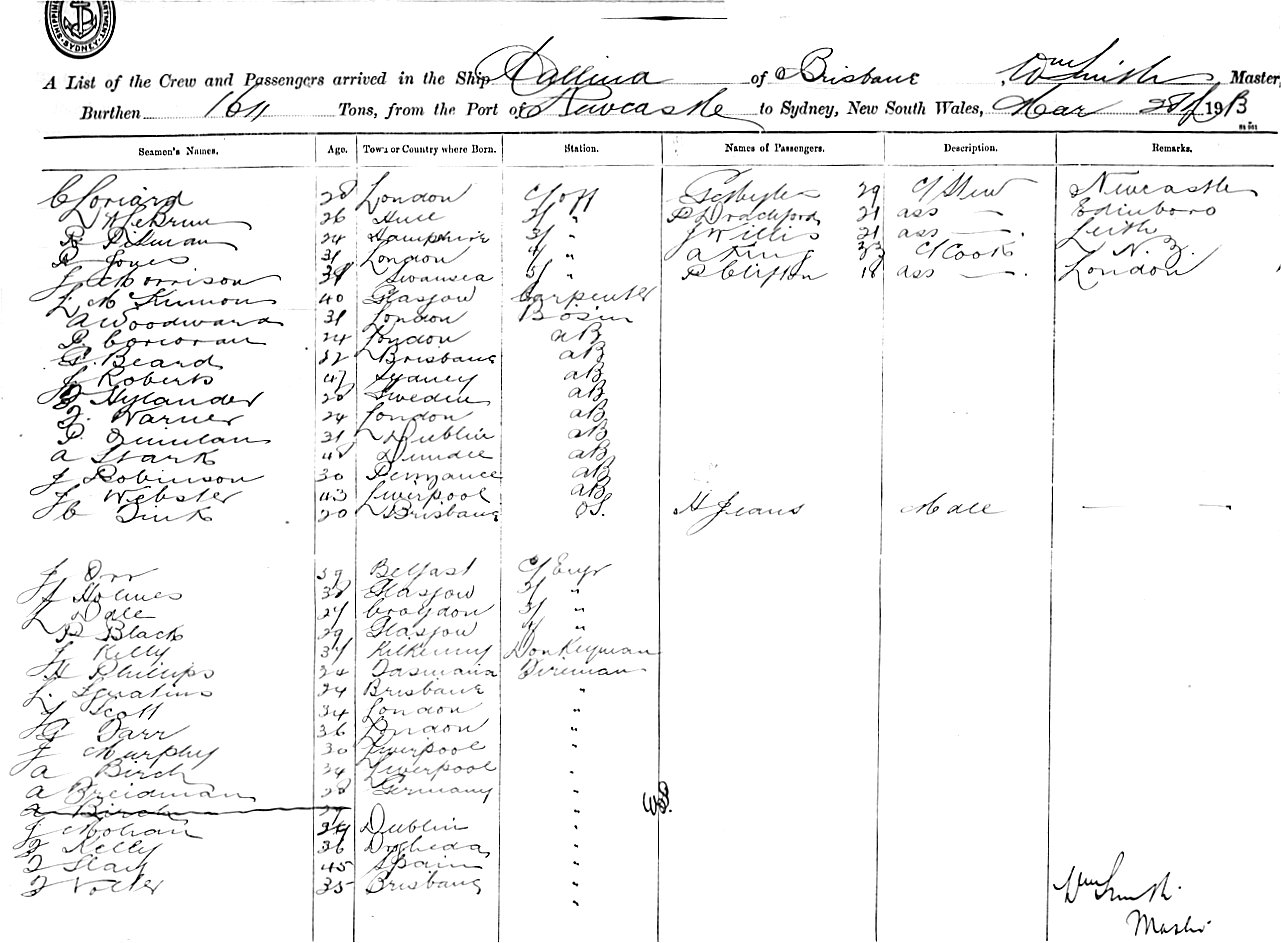 SHIPPING DEPARTMENT SYDNEY
A List of the Crew and Passengers arrived in the Ship Kallina of Brisbane Wm Smith Master,
Burthen Tons, from the Port of Newcastle to Sydney, New South Wales, Mar 191
Seamen's Names. Age. Town or Country where Born. Station. Names of Passengers. Description. Remarks.
C Loriard 28 London C/off 29 C/Stew Newcastle
26 Hull 2/ " P Drachford 21 ass — Edinboro
R Pitman 24 Hampshire 3/ " J Willis 21 ass — Leith
R Jones 31 London 4/ " A King 33 C/Cook N.Z.
J Morrison Swansea 5/ " P Clifton 18 ass — London
L McKinnon 40 Glasgow Carpenter
A Woodward 31 London Bosun
P. Corcoran 24 London AB
G. Beard Brisbane AB
J Roberts 47 Sydney AB
Hylander 28 Sweden AB
J. Warner 24 London AB
P. Quinlan 31 Dublin AB
A Stark 48 Dundee AB
J Robinson 30 Penzance AB
J Webster 43 Liverpool AB
C Zink 20 Brisbane OS. H Jeans Male —
J Orr 39 Belfast C/Engr
Holmes 38 Glasgow 2/ "
L Dale 27 Croydon 3/ "
P Black 29 Glasgow 4/ "
J Kelly 37 Kilkenny Donkeyman
H Phillips 24 Tasmania Fireman
L. Ignatius 24 Brisbane "
J Scott 34 London "
G Darr 36 London "
J Murphy 30 Liverpool "
A Birch 34 Liverpool "
A Breidman 28 Germany "
A Birch W.S.
J Mohan Dublin "
J Kelly 36 Drogheda "
45 Spain "
35 Brisbane "
Wm Smith
Master